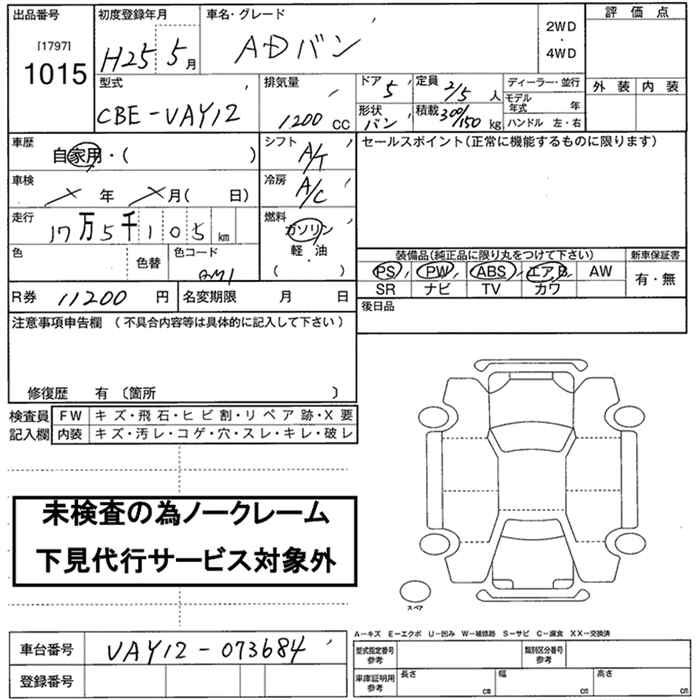 出品番号
[1797]
1015
初度登録年月
H25 5月
車名・グレード
ADバン
2WD
・
4WD
評価点
外装 内装
型式
CBE-VAY12
排気量
1200 cc
ドア 5
形状 バン
定員 2/5 人
積載 300/150 kg
ディーラー・並行
モデル年式 年
ハンドル 左・右
車歴
自家用・( )
シフト A/T
セールスポイント(正常に機能するものに限ります)
車検
× 年 × 月( 日)
冷房 A/C
走行
17万5千105 km
燃料
ガソリン
軽・油
( )
色
色替
色コード
装備品(純正品に限り丸をつけて下さい)
新車保証書
PS PW ABS エアB AW
有・無
SR ナビ TV カワ
R券 11200 円
名変期限 月 日
後日品
注意事項申告欄 (不具合内容等は具体的に記入して下さい)
修復歴 有 〔箇所 〕
検査員記入欄
FW キズ・飛石・ヒビ割・リペア跡・X要
内装 キズ・汚レ・コゲ・穴・スレ・キレ・破レ
未検査の為ノークレーム
下見代行サービス対象外
スペア
A-キズ E-エクボ U-凹み W-補修跡 S-サビ C-腐食 XX-交換済
車台番号 VAY12-073684
登録番号
型式指定番号 参考
類別区分番号 参考
車庫証明用 参考
長さ cm
幅 cm
高さ cm